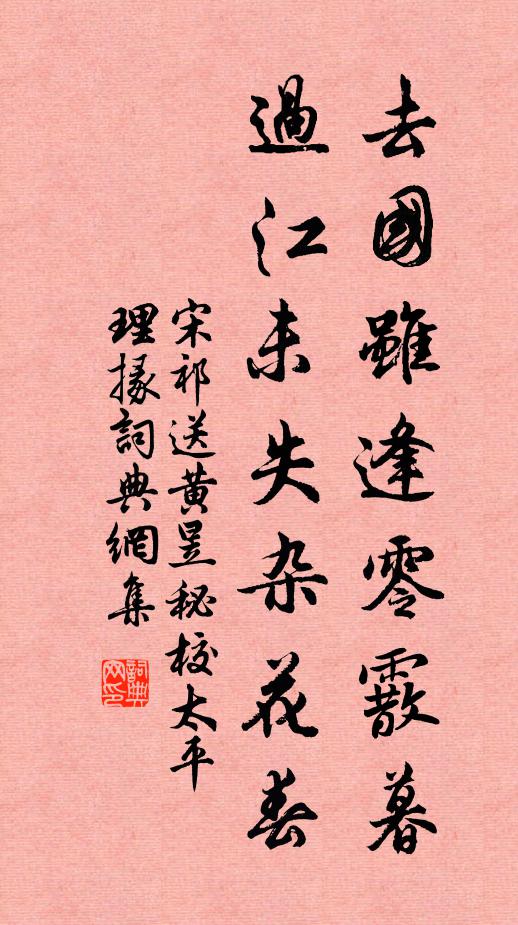 去國雖逢零霰暮
過江未失杂花春
宋祁送黄昱秘校太平
理掾詞典網集
詞典网印